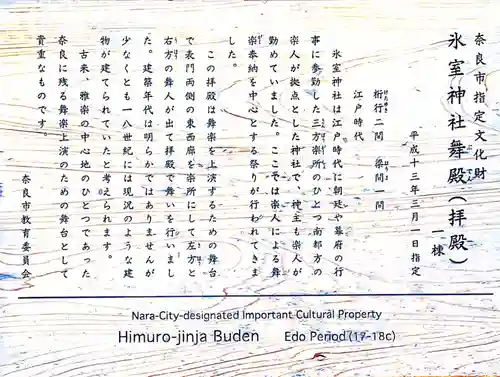 奈良市指定文化財
氷室神社舞殿(拝殿) 一棟
平成十三年三月一日指定
桁行二間 梁間一間
江戸時代
氷室神社は江戸時代に朝廷や幕府の行
事に参勤した三方楽所のひとつ南都方の
楽人が拠点とした神社で、神主も楽人が
勤めていました。ここでは楽人による舞
楽奉納を中心とする祭りが行われてきま
した。
この拝殿は舞楽を上演するための舞台
で表門両側の東西廊を楽所にして左方と
右方の舞人が出て拝殿で舞いを行いまし
た。建築年代は明らかではありませんが
少なくとも一八世紀には現況のような建
物が建てられていたと考えられます。
古来、雅楽の中心地のひとつであった
奈良に残る舞楽上演のための舞台として
貴重なものです。
奈良市教育委員会
Nara-City-designated Important Cultural Property
Himuro-jinja Buden Edo Period (17-18c)